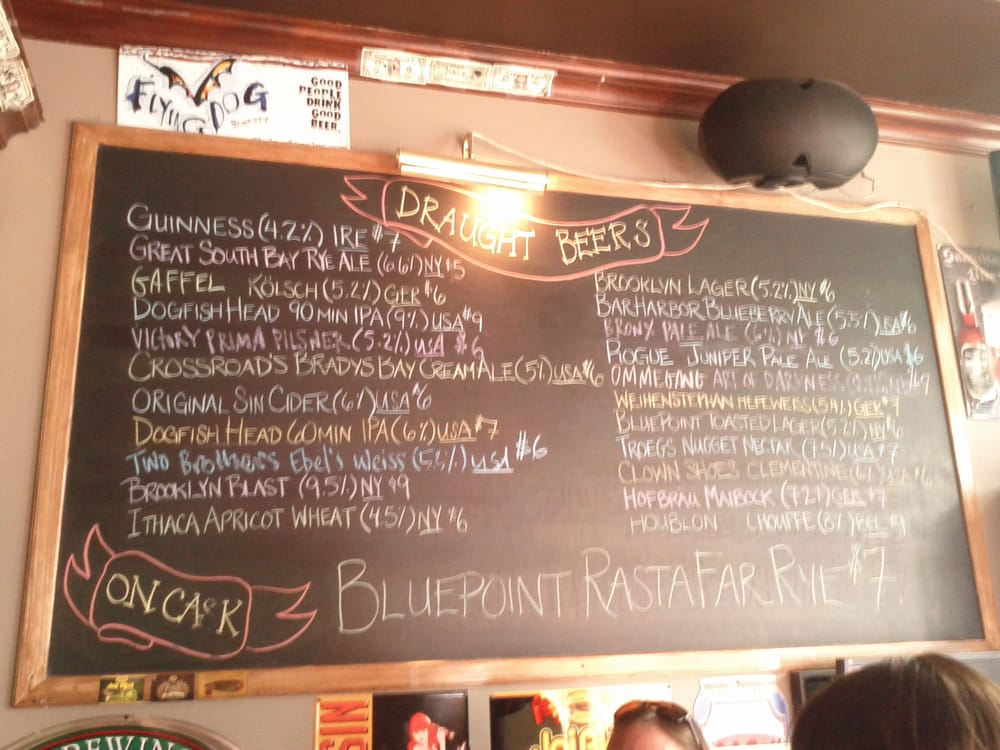 FLYING DOG
Brewery
GOOD
PEOPLE
DRINK
GOOD
BEER.
DRAUGHT BEERS
GUINNESS (4.2%) IRE $7
GREAT SOUTH BAY RYE ALE (6.6%) NY $5
GAFFEL KÖLSCH (5.2%) GER $6
DOGFISH HEAD 90 MIN IPA (9%) USA $9
VICTORY PRIMA PILSNER (5.2%) USA $6
CROSSROAD'S BRADYS BAY CREAM ALE (5%) USA $6
ORIGINAL SIN CIDER (6%) USA $6
DOGFISH HEAD 60 MIN IPA (6%) USA $7
TWO BROTHERS EBEL'S WEISS (5.5%) USA $6
BROOKLYN BLAST (9.5%) NY $9
ITHACA APRICOT WHEAT (4.5%) NY $6
BROOKLYN LAGER (5.2%) NY $6
BAR HARBOR BLUEBERRY ALE (5.5%) USA $6
BRONX PALE ALE (6%) NY $6
ROGUE JUNIPER PALE ALE (5.2) USA $6
OMMEGANG ART OF DARKNESS
WEIHENSTEPHAN HEFEWEIS (5.4%) GER $7
BLUEPOINT TOASTED LAGER (5.2%) NY $6
TROEGS NUGGET NECTAR (7.5%) USA $7
CLOWN SHOES CLEMENTINE (6%) USA $6
HOFBRAU MAIBOCK (7.2%) GER $7
HOUBLON CHOUFFE (8%) BEL $9
ON CASK
BLUEPOINT RASTAFAR RYE $7